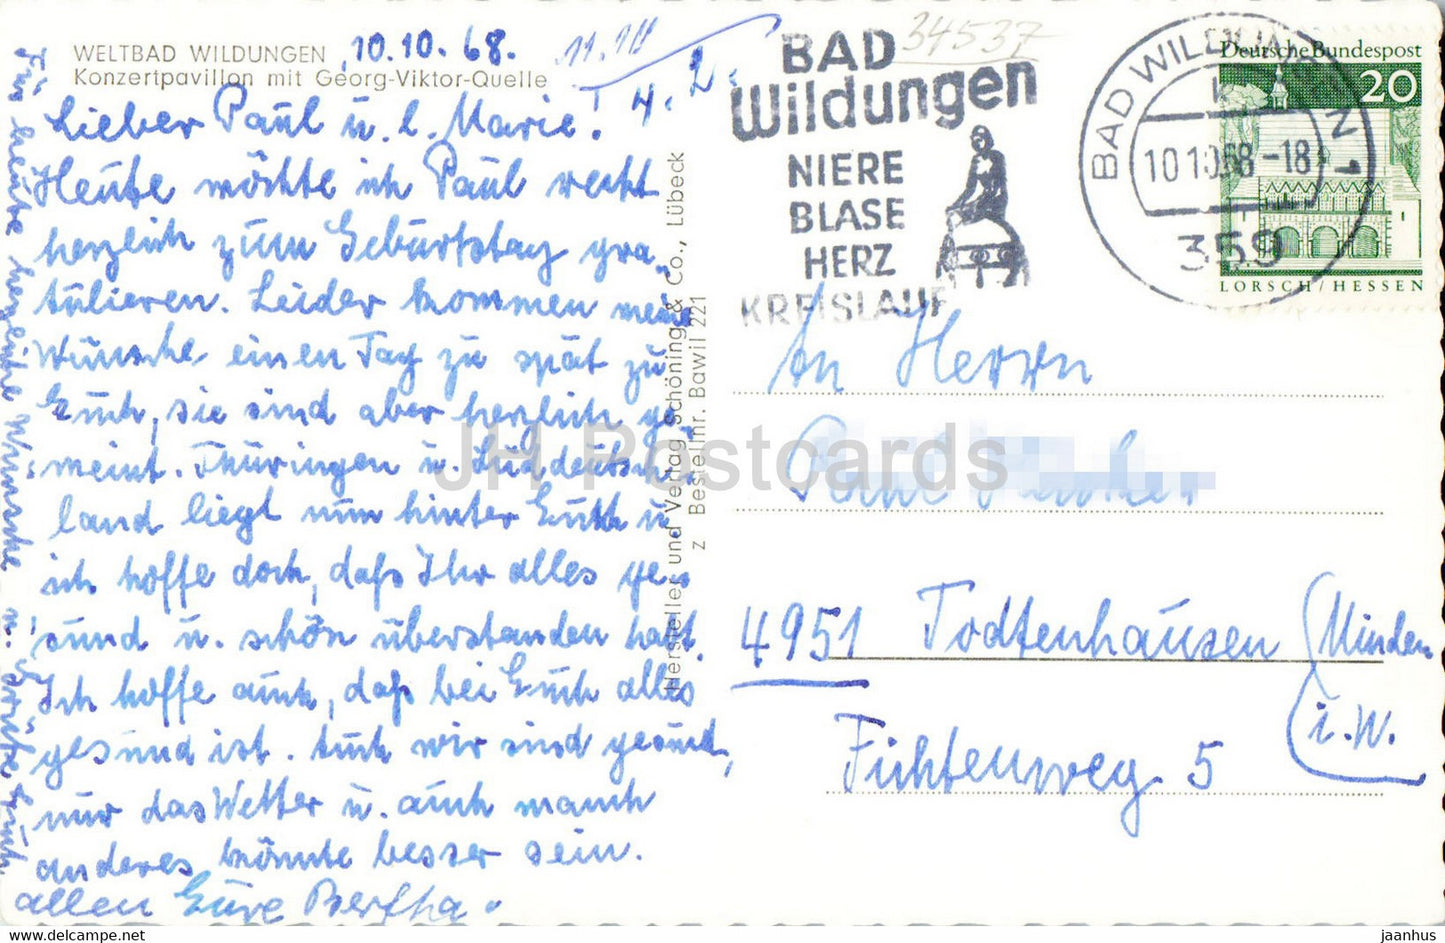 WELTBAD WILDUNGEN
Konzertpavillon mit Georg-Viktor-Quelle
10.10.68.
11.10
34537
Lieber Paul u. l. Marie!
Heute möchte ich Paul recht
herzlich zum Geburtstag gra-
tulieren. Leider kommen meine
Wünsche einen Tag zu spät zu
Euch, sie sind aber herzlich ge-
meint. Thüringen u. Süddeutsch-
land liegt nun hinter Euch u.
ich hoffe doch, daß Ihr alles ge-
sund u. schön überstanden habt.
Ich hoffe auch, daß bei Euch alles
gesund ist. Auch wir sind gesund,
nur das Wetter u. auch manch
anderes könnte besser sein.
Für heute herzliche Wünsche u. Grüße Euch
allen Eure Bertha.
Hersteller und Verlag Schöning & Co., Lübeck
z Bestellnr. Bawil 221
BAD
Wildungen
NIERE
BLASE
HERZ
KREISLAUF
BAD WILDUNGEN 1
10.10.68-18
359
Deutsche Bundespost
20
LORSCH/HESSEN
An Herrn
Paul
4951 Todtenhausen (Minden
i.W.
Fichtenweg 5
JH Postcards
https://www.hippostcard.com
jaanhus